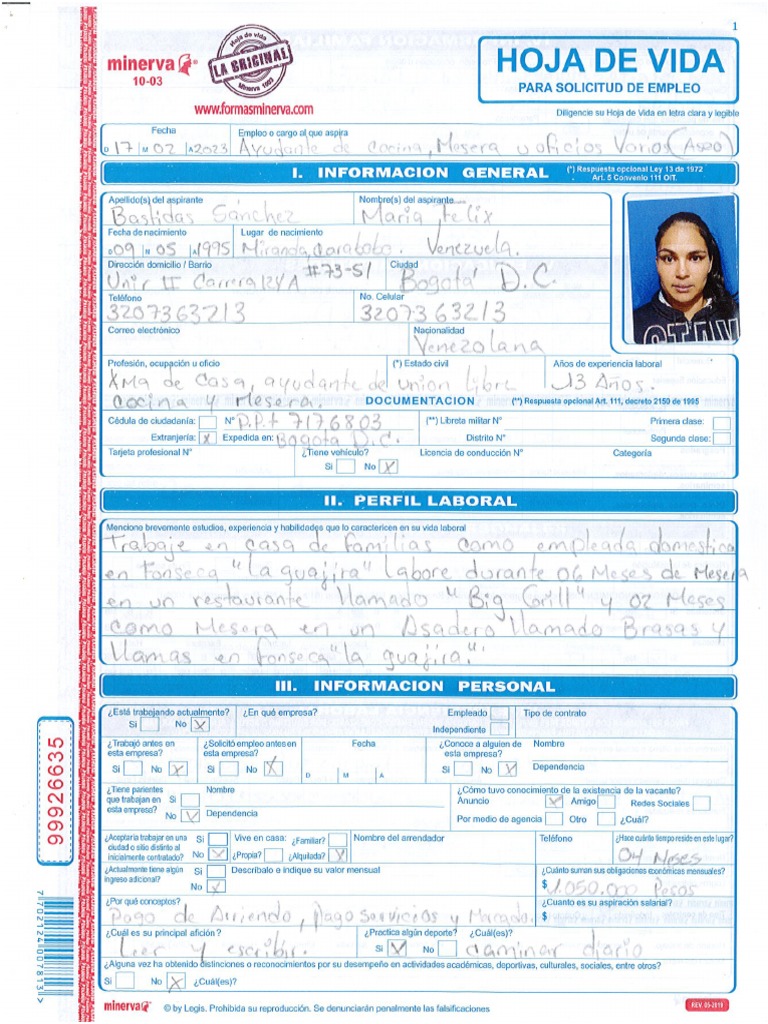 1
minerva
10-03
Hoja de vida
LA ORIGINAL
Minerva 1003
www.formasminerva.com
HOJA DE VIDA
PARA SOLICITUD DE EMPLEO
Diligencie su Hoja de Vida en letra clara y legible
Fecha Empleo o cargo al que aspira
D 17 M 02 A 2023 Ayudante de Cocina, Mesera u oficios Varios (Aseo)
I. INFORMACION GENERAL (*) Respuesta opcional Ley 13 de 1972
Art. 5 Convenio 111 OIT.
Apellido(s) del aspirante Nombre(s) del aspirante
Bastidas Sánchez Maria Felix
Fecha de nacimiento Lugar de nacimiento
D 09 M 05 A 1995 Miranda, Carabobo. Venezuela.
Dirección domicilio / Barrio #73-51 Ciudad
Unir II Carrera 124A Bogotá D.C.
Teléfono No. Celular
3207363213 3207363213
Correo electrónico Nacionalidad
Venezolana
Profesión, ocupación u oficio (*) Estado civil Años de experiencia laboral
Ama de Casa, ayudante de union libre 13 Años.
Cocina y Mesera. DOCUMENTACION (**) Respuesta opcional Art. 111, decreto 2150 de 1995
Cédula de ciudadanía: N° P.P.t 7176803 (**) Libreta militar N° Primera clase:
Extranjería: X Expedida en: Bogotá D.C. Distrito N° Segunda clase:
Tarjeta profesional N° ¿Tiene vehículo? Licencia de conducción N° Categoría
Si No X
II. PERFIL LABORAL
Mencione brevemente estudios, experiencia y habilidades que lo caractericen en su vida laboral
Trabaje en casa de familias como empleada domestica
en Fonseca "la guajira" labore durante 06 Meses de Mesera
en un restaurante llamado "Big Grill" y 02 Meses
como Mesera en un Asadero llamado Brasas y
llamas en fonseca "la guajira".
III. INFORMACION PERSONAL
¿Está trabajando actualmente? ¿En qué empresa? Empleado Tipo de contrato
Si No X Independiente
¿Trabajó antes en esta empresa? ¿Solicitó empleo antes en esta empresa? Fecha ¿Conoce a alguien de esta empresa? Nombre
Si No X Si No X D M A Si No X Dependencia
¿Tiene parientes que trabajan en esta empresa? Si Nombre ¿Cómo tuvo conocimiento de la existencia de la vacante?
Anuncio X Amigo Redes Sociales
No X Dependencia Por medio de agencia Otro ¿Cuál?
¿Aceptaría trabajar en una ciudad o sitio distinto al inicialmente contratado? Si Vive en casa: ¿Familiar? Nombre del arrendador Teléfono ¿Hace cuánto tiempo reside en este lugar?
No X ¿Propia? ¿Alquilada? X 04 Meses
¿Actualmente tiene algún ingreso adicional? Si Descríbalo e indique su valor mensual ¿Cuánto suman sus obligaciones económicas mensuales?
No X $ 1.050.000 Pesos
¿Por qué conceptos? ¿Cuanto es su aspiración salarial?
Pago de Arriendo, Pago servicios y Mercado. $
¿Cuál es su principal afición? ¿Practica algún deporte? ¿Cuál(es)?
Leer y escribir. Si X No caminar diario
¿Alguna vez ha obtenido distinciones o reconocimientos por su desempeño en actividades académicas, deportivas, culturales, sociales, entre otros?
Si No X ¿Cuál(es)?
minerva © by Legis. Prohibida su reproducción. Se denunciarán penalmente las falsificaciones REV. 05-2019
99926635